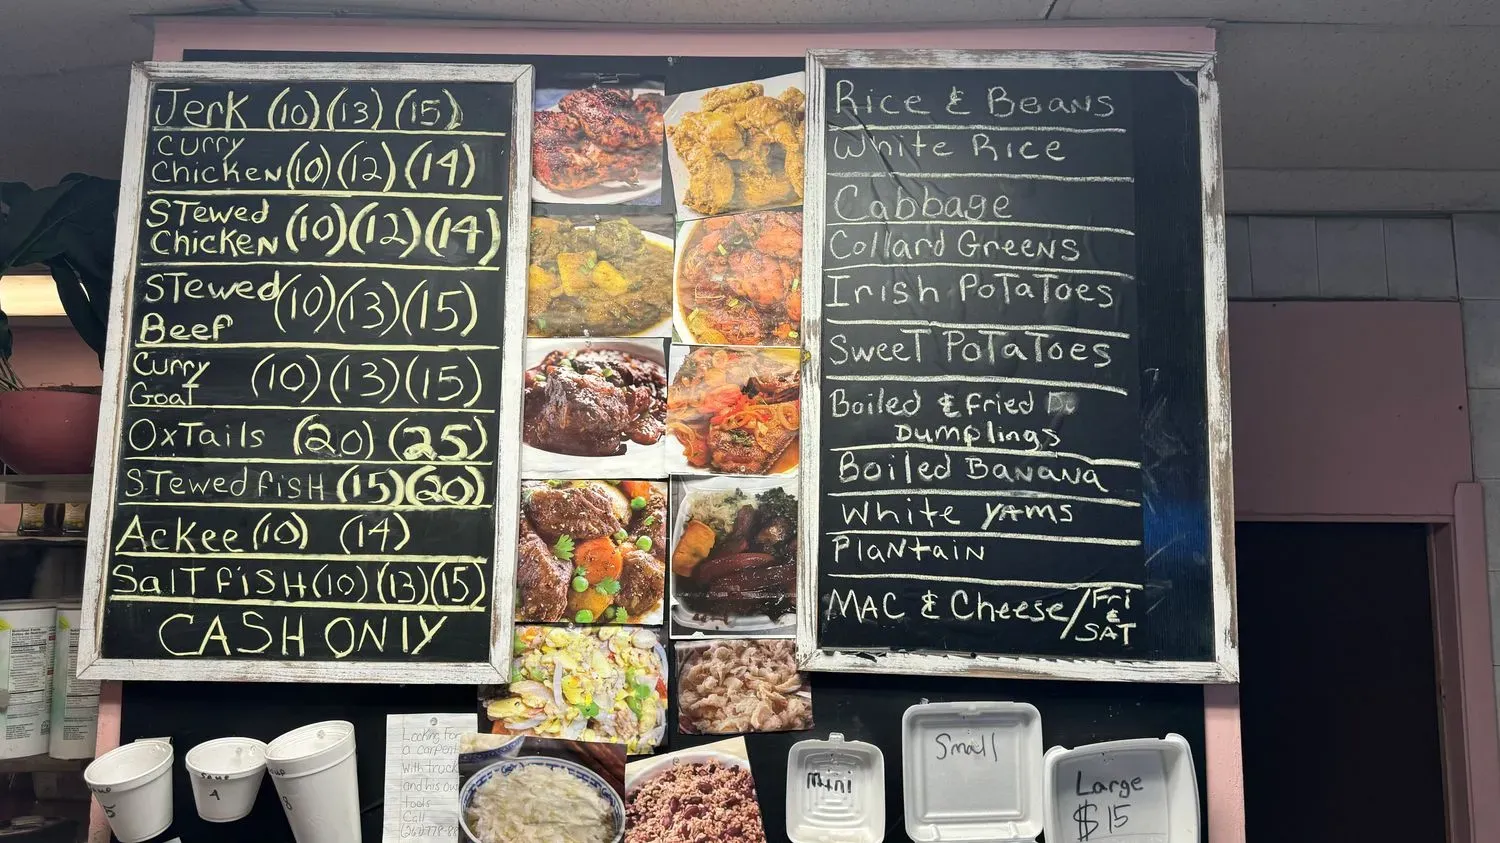 Jerk (10) (13) (15)
Curry
Chicken (10) (12) (14)
Stewed
Chicken (10) (12) (14)
Stewed
Beef (10) (13) (15)
Curry
Goat (10) (13) (15)
OxTails (20) (25)
Stewed fish (15) (20)
Ackee (10) (14)
Salt fish (10) (13) (15)
CASH ONLY
Rice & Beans
White Rice
Cabbage
Collard Greens
Irish Potatoes
Sweet Potatoes
Boiled & Fried
Dumplings
Boiled Banana
White Yams
Plantain
MAC & Cheese / Fri
&
SAT
Looking for
a
with truck
and his
tools
Call
mini
Small
Large
$15
4
8